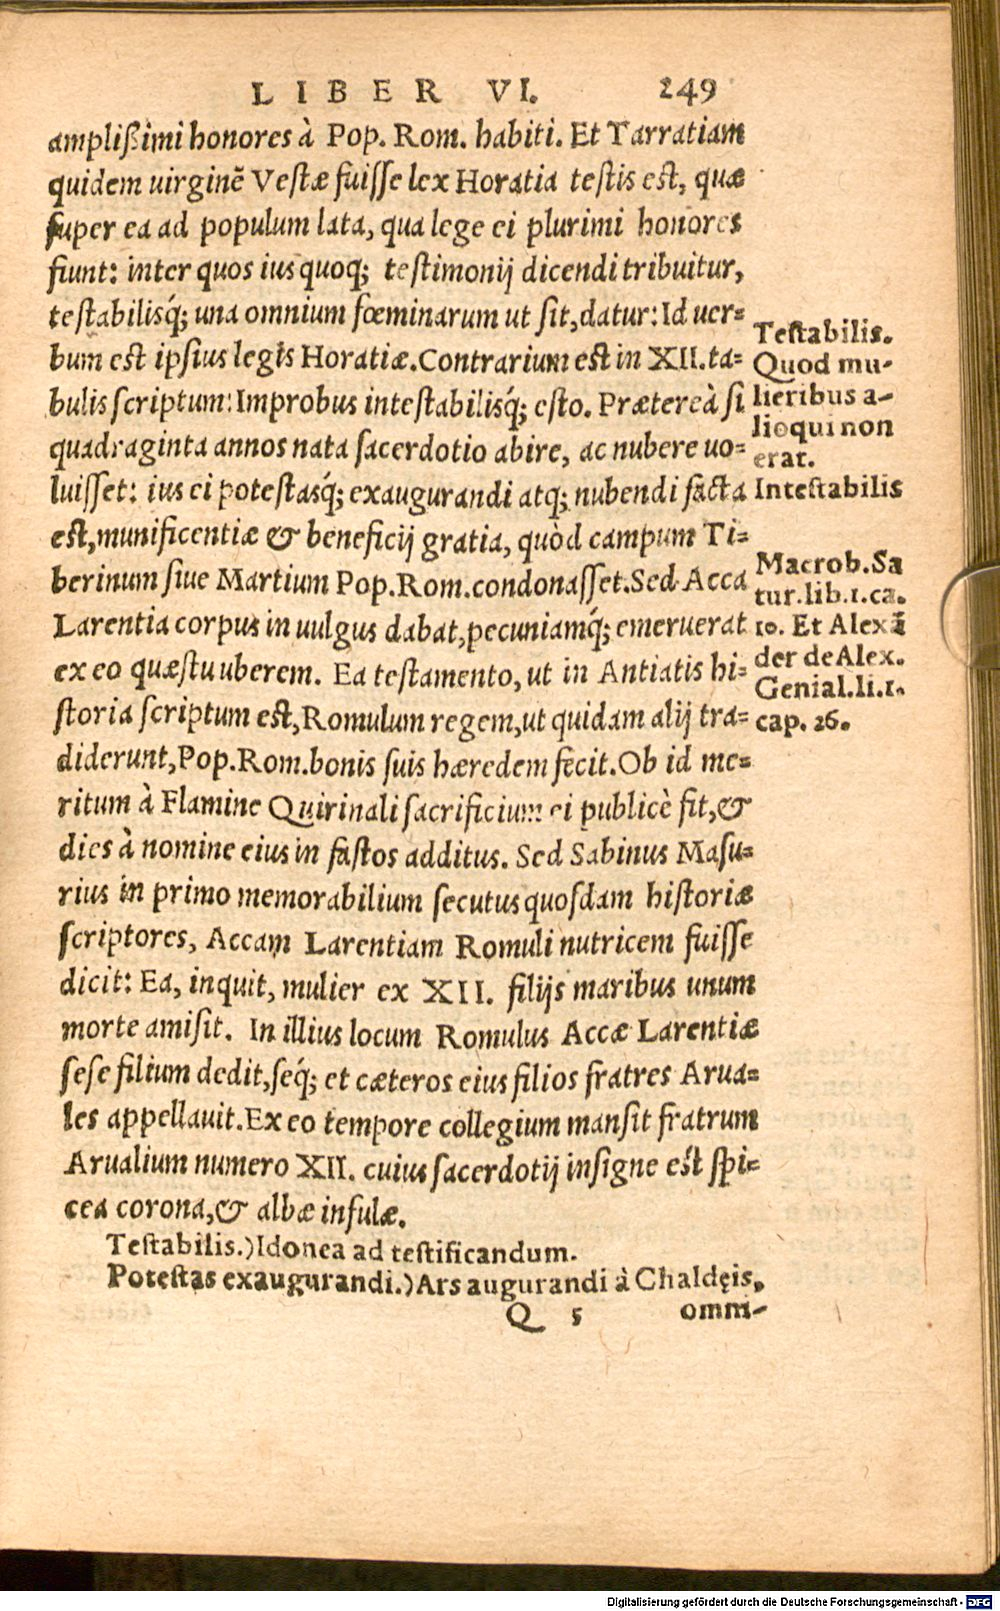 LIBER VI. 249
ampliſſimi honores à Pop. Rom. habiti. Et Tarratiam
quidem uirginē Veſtæ fuiſſe lex Horatia teſtis eſt, quæ
ſuper ea ad populum lata, qua lege ei plurimi honores
fiunt: inter quos ius quoq; teſtimonij dicendi tribuitur,
teſtabilisq́; una omnium fœminarum ut ſit, datur: Id uer-
bum eſt ipſius legis Horatiæ. Contrarium eſt in XII. ta-
bulis ſcriptum: Improbus inteſtabilisq́; eſto. Prætereà ſi
quadraginta annos nata ſacerdotio abire, ac nubere uo-
luiſſet: ius ei poteſtasq́; exaugurandi atq; nubendi facta
eſt, munificentiæ & beneficij gratia, quòd campum Ti-
berinum ſiue Martium Pop. Rom. condonaſſet. Sed Acca
Larentia corpus in uulgus dabat, pecuniamq́; emeruerat
ex eo quæſtu uberem. Ea teſtamento, ut in Antiatis hi-
ſtoria ſcriptum eſt, Romulum regem, ut quidam alij tra-
diderunt, Pop. Rom. bonis ſuis hæredem fecit. Ob id me-
ritum à Flamine Quirinali ſacrificium ei publicè fit, &
dies à nomine eius in faſtos additus. Sed Sabinus Maſu-
rius in primo memorabilium ſecutus quoſdam hiſtoriæ
ſcriptores, Accam Larentiam Romuli nutricem fuiſſe
dicit: Ea, inquit, mulier ex XII. filijs maribus unum
morte amiſit. In illius locum Romulus Accæ Larentiæ
ſeſe filium dedit, ſeq́; et cæteros eius filios fratres Arua-
les appellauit. Ex eo tempore collegium manſit fratrum
Arualium numero XII. cuius ſacerdotij inſigne eſt ſpi-
cea corona, & albæ inſulæ.
Teſtabilis.) Idonea ad teſtificandum.
Poteſtas exaugurandi.) Ars augurandi à Chaldęis,
Q 5 omni-
Teſtabilis.
Quod mu-
lieribus a-
lioqui non
erat.
Inteſtabilis
Macrob. Sa
tur. lib. 1. ca.
10. Et Alexā
der de Alex.
Genial. li. 1.
cap. 26.
Digitalisierung gefördert durch die Deutsche Forschungsgemeinschaft - DFG